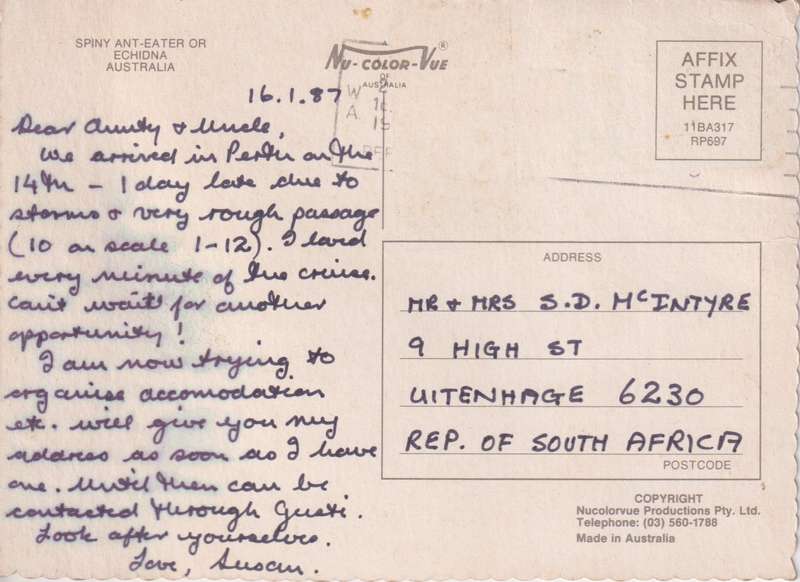 SPINY ANT-EATER OR
ECHIDNA
AUSTRALIA
NU-COLOR-VUE®
OF
AUSTRALIA
16.1.87
Dear Aunty & Uncle,
We arrived in Perth on the
14th - 1 day late due to
storms & very rough passage
(10 on scale 1-12). I loved
every minute of the cruise.
Can't wait for another
opportunity!
I am now trying to
organise accomodation
etc. will give you my
address as soon as I have
one. Until then can be
contacted through Gusti.
Look after yourselves.
Love, Susan.
AFFIX
STAMP
HERE
11BA317
RP697
ADDRESS
MR & MRS S.D. McINTYRE
9 HIGH ST
UITENHAGE 6230
REP. OF SOUTH AFRICA
POSTCODE
COPYRIGHT
Nucolorvue Productions Pty. Ltd.
Telephone: (03) 560-1788
Made in Australia